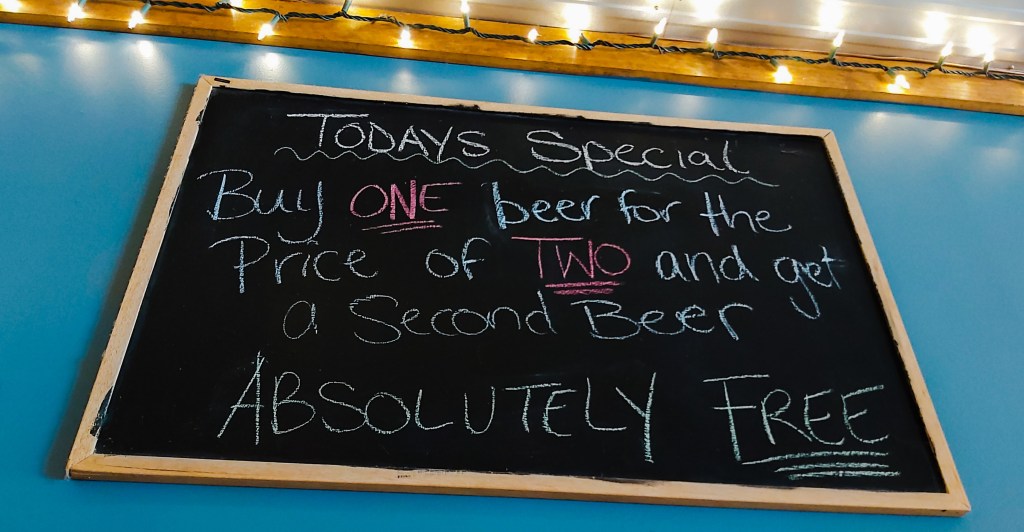 TODAYS Special
Buy ONE beer for the
Price of TWO and get
a Second Beer
ABSOLUTELY FREE